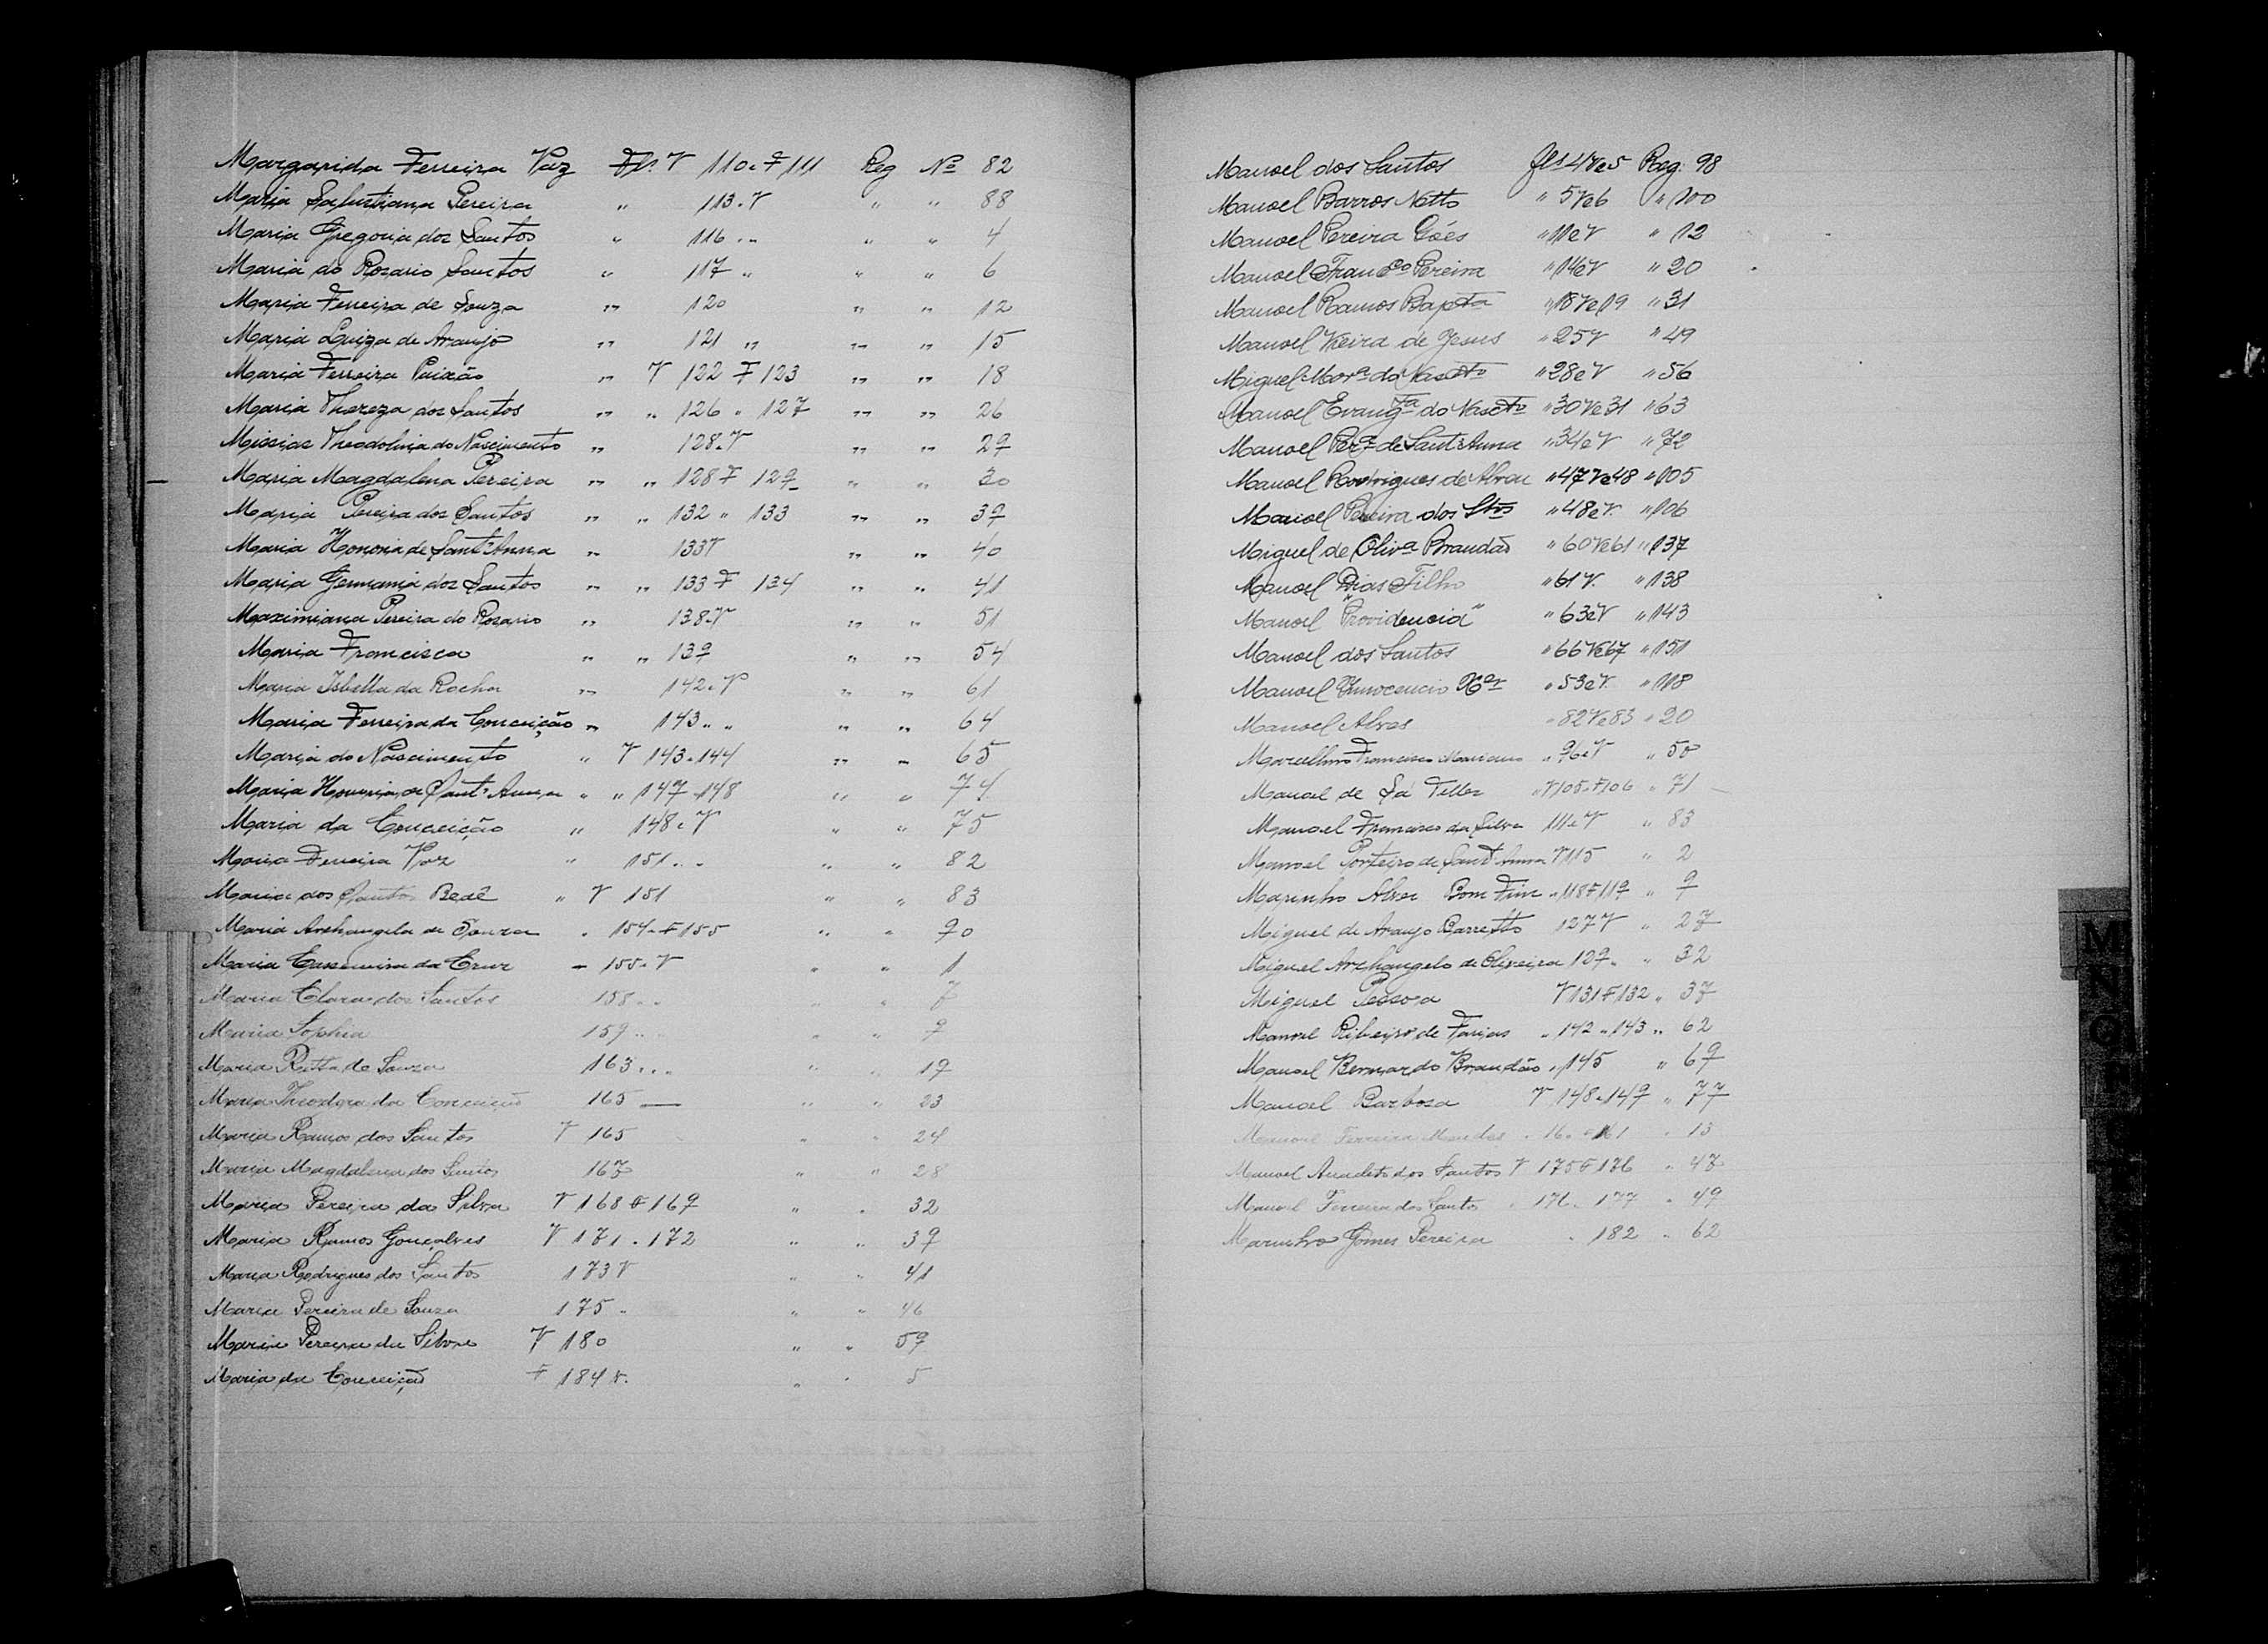 Margarida Ferreira Vaz Fls. V 110 e F 111 Reg No 82
Maria Salustiana Pereira " 113 e V " " 88
Maria Gregoria dos Santos " 116 " " " " 4
Maria do Rozario Santos " 117 " " " 6
Maria Ferreira de Souza " 120 " " 12
Maria Luiza de Araujo " 121 " " " 15
Maria Ferreira Paixão " V 122 F 123 " " 18
Maria Thereza dos Santos " " 126 " 127 " " 26
Theodolina do Nascimento " 128 e V " " 29
Maria Magdalena Pereira " " 128 F 129 " " 30
Maria Pereira dos Santos " " 132 " 133 " " 39
Maria Honoria de Sant'Anna " 133 V " " 40
Maria Germania dos Santos " " 133 F 134 " " 41
Maximiana Pereira do Rozario " 138 e V " " 51
Maria Francisca " " 139 " " 54
Maria Isbella da Rocha " 142 e V " " 61
Maria Ferreira da Conceição " 143 " " " " 64
Maria do Nascimento " V 143 e 144 " " 65
Maria Honoria de Sant'Anna " " 147 e 148 " " 74
Maria da Conceição " 148 e V " " 75
Maria Ferreira Vaz " 151 " " " " 82
Maria dos Santos Bedê " V 151 " " 83
Maria Archangela de Souza " 154 e F 155 " " 90
Maria Casemira da Cruz " 155 e V " " 1
Maria Clara dos Santos 158 " " " " 7
Maria Sophia 159 " " " 9
Maria Ritta de Souza 163 " " " " 19
Maria Theodora da Conceição 165 — " " 23
Maria Ramos dos Santos V 165 " " 24
Maria Magdalena dos Santos 167 " " 28
Maria Pereira da Silva V 168 F 169 " " 32
Maria Ramos Gonçalves V 171 e 172 " " 39
Maria Rodrigues dos Santos 173 V " " 41
Maria Pereira de Souza 175 " " " 46
Maria Pereira da Silva V 180 " " 59
Maria da Conceição F 184 v. " " 5
Manoel dos Santos fls 4Ve5 Reg. 98
Manoel Barros Netto " 5Ve6 " 100
Manoel Pereira Góes " 11eV " 12
Manoel Franco Pereira " 14eV " 20
Manoel Ramos Bapta " 18Ve19 " 31
Manoel Vieira de Jesus " 25V " 49
Miguel Mora do Nascto " 28eV " 56
Manoel Evangta do Nascto " 30Ve31 " 63
Manoel Pera de Sant'Anna " 34eV " 72
Manoel Rodrigues de Abreu " 47Ve48 " 105
Manoel Pereira dos Stos " 48eV. " 106
Miguel de Oliva Brandão " 60Ve61 " 137
Manoel Dias Filho " 61V. " 138
Manoel "Providencia" " 63eV " 143
Manoel dos Santos " 66Ve67 " 151
Manoel Innocencio Xer " 53eV. " 118
Manoel Alves " 82Ve83 " 20
Marcellino Francisco Mariano " 96eV " 50
Manoel de Sá Telles " V105 e F106 " 71
Manoel Francisco da Silva 111eV " 83
Manoel Porteiro de Sant'Anna V115 " 2
Marinho Alves Bom Fim " 118F119 " 9
Miguel de Araujo Barretto 127V " 27
Miguel Archangelo de Oliveira 129 " " 32
Miguel Pessoa V131F132 " 37
Manoel Ribeiro de Farias " 142 " 143 " 62
Manoel Bernardo Brandão " 145 " 69
Manoel Barbosa V 148 e 149 " 77
Manoel Ferreira Mendes " 161 " 13
Manoel Anacleto dos Santos V 175F176 " 47
Manoel Ferreira dos Santos " 176 " 177 " 49
Marinho Gomes Pereira " 182 " 62